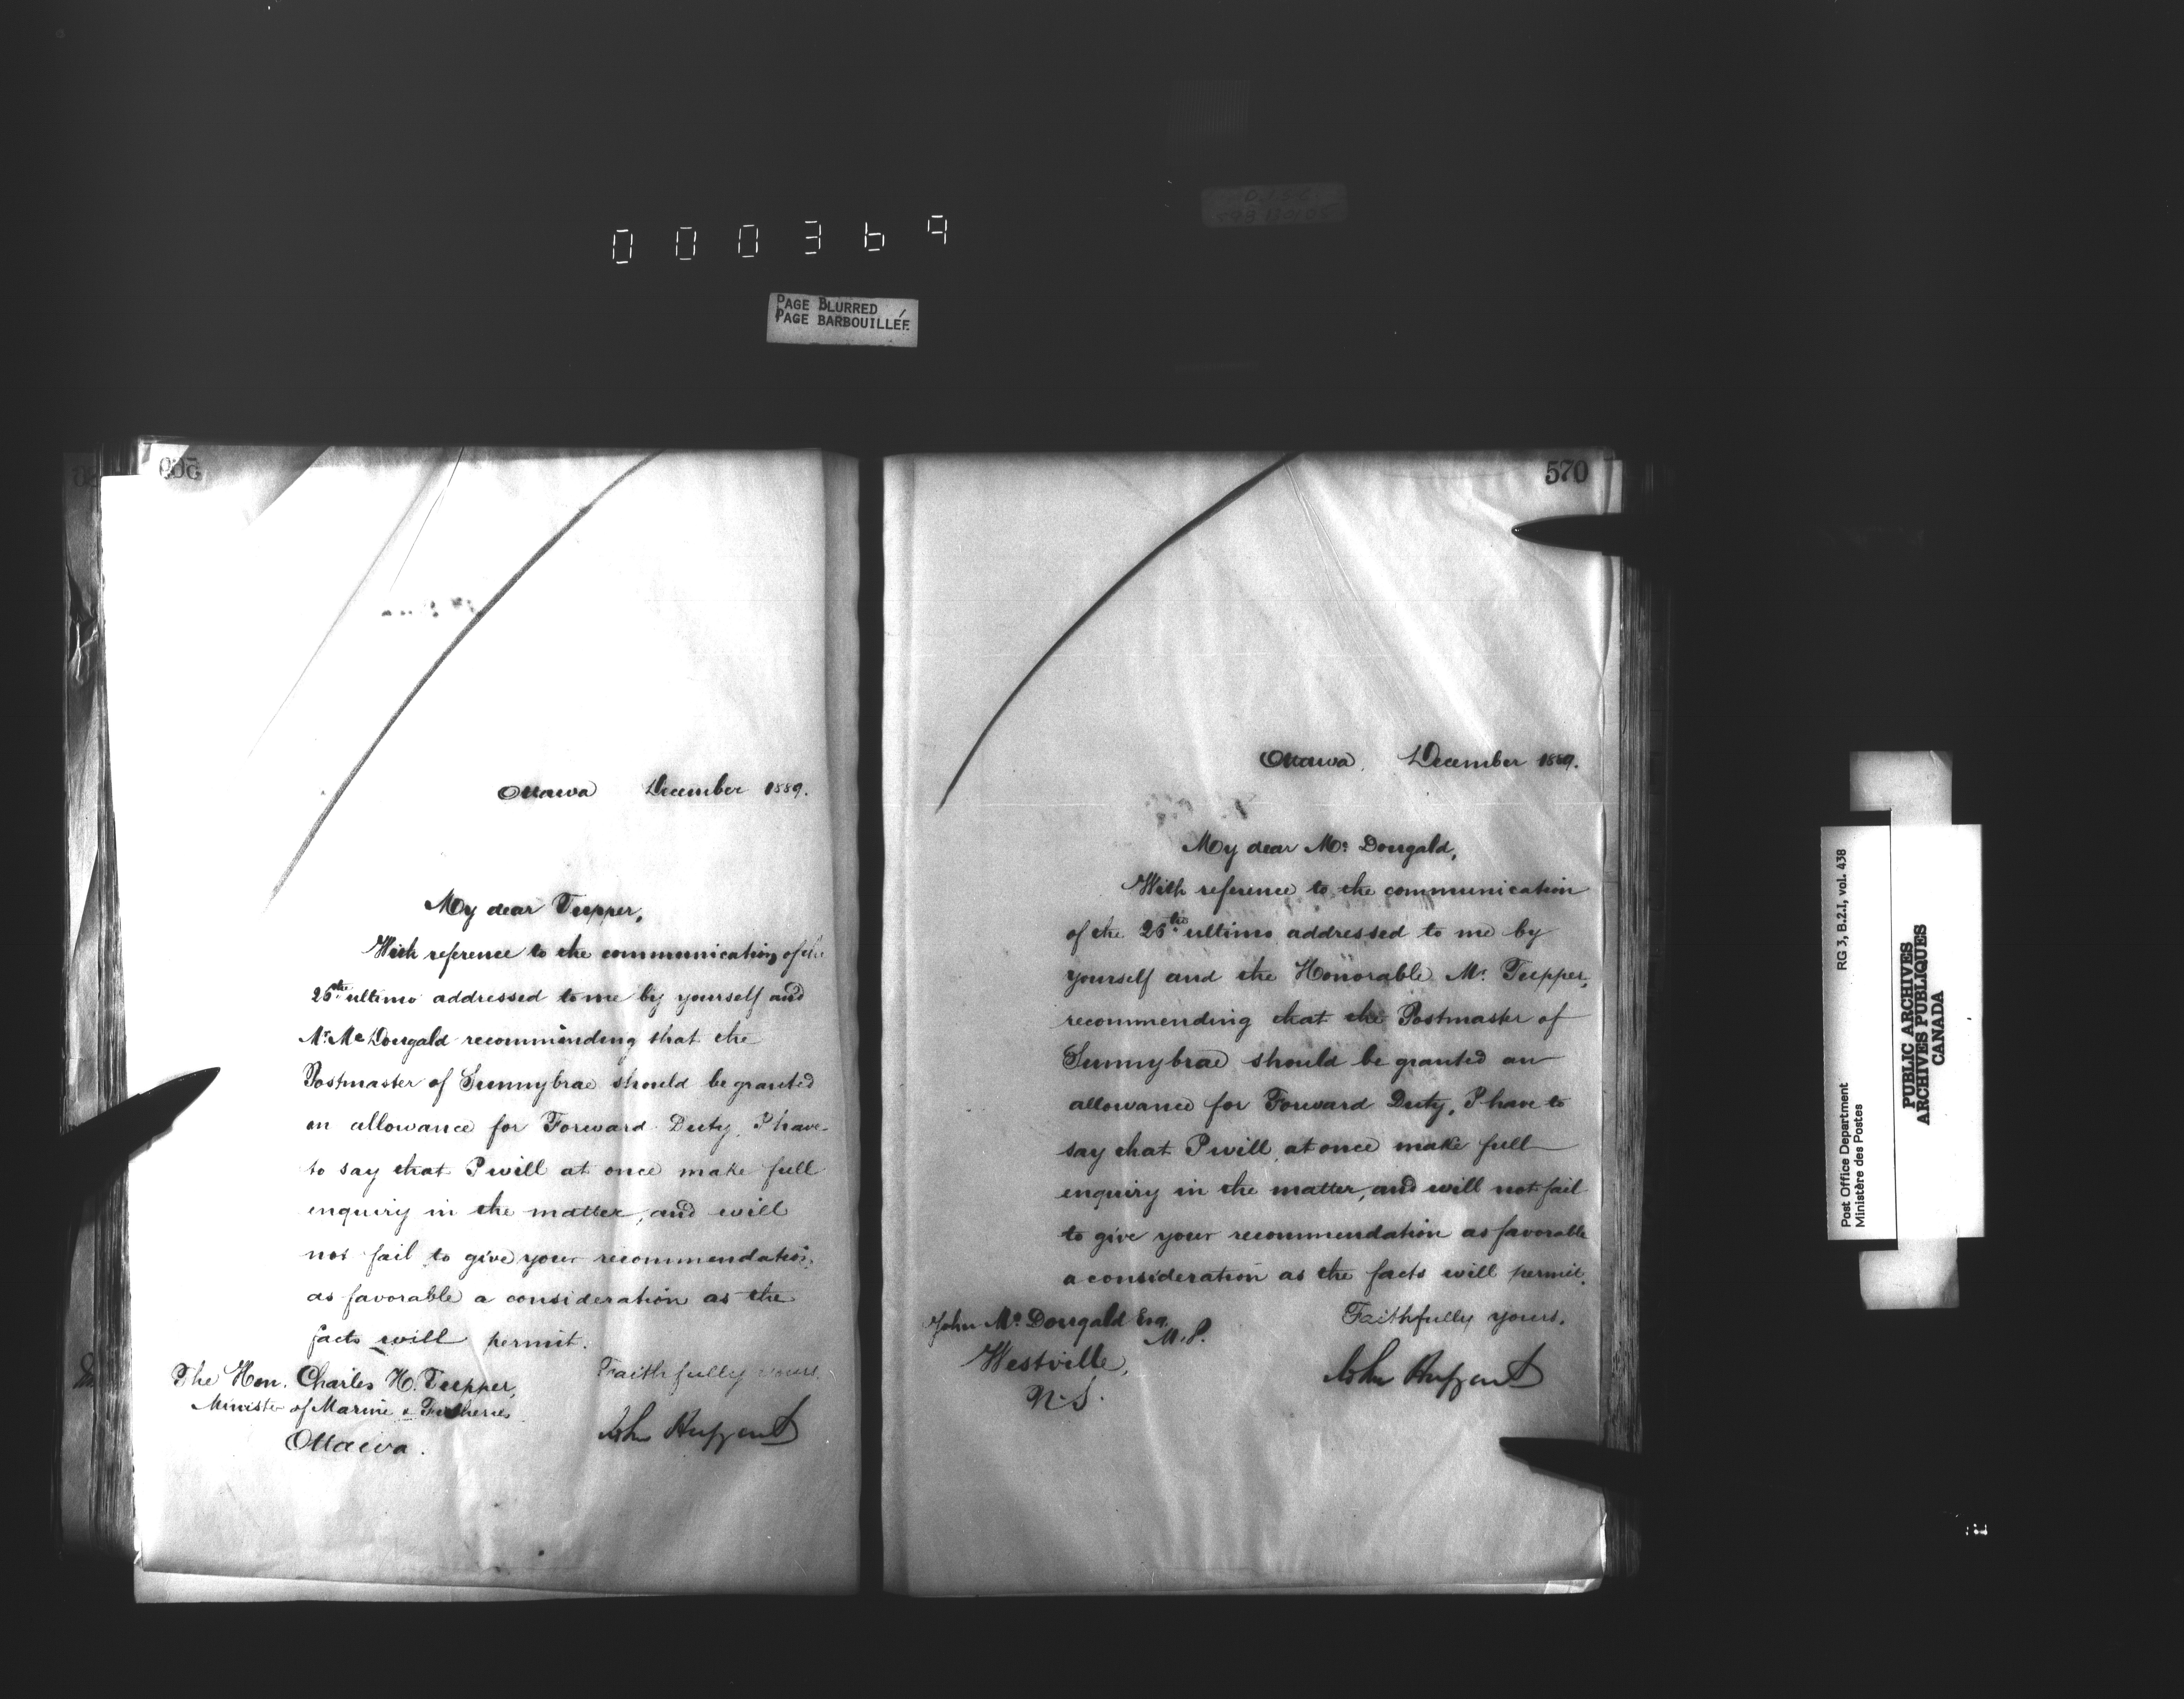 000369
PAGE BLURRED
PAGE BARBOUILLÉE
Ottawa December 1889.
My dear Tupper,
With reference to the communication of the
26th ultimo addressed to me by yourself and
Mr. McDougald recommending that the
Postmaster of Sunnybrae should be granted
an allowance for Forward Duty, I have
to say that I will at once make full
enquiry in the matter, and will
not fail to give your recommendation
as favorable a consideration as the
facts will permit.
Faithfully yours,
The Hon. Charles H. Tupper,
Minister of Marine & Fisheries
Ottawa.
John Haggart
570
Ottawa, December 1889.
My dear Mc Dougald,
With reference to the communication
of the 26th ultimo addressed to me by
yourself and the Honorable Mr. Tupper,
recommending that the Postmaster of
Sunnybrae should be granted an
allowance for Forward Duty, I have to
say that I will, at once make full
enquiry in the matter, and will not fail
to give your recommendation as favorable
a consideration as the facts will permit.
Faithfully yours,
John Mc Dougald Esq.
M.P.
Westville,
N.S.
John Haggart
Post Office Department RG 3, B.2.I, vol. 438
Ministère des Postes
PUBLIC ARCHIVES
ARCHIVES PUBLIQUES
CANADA